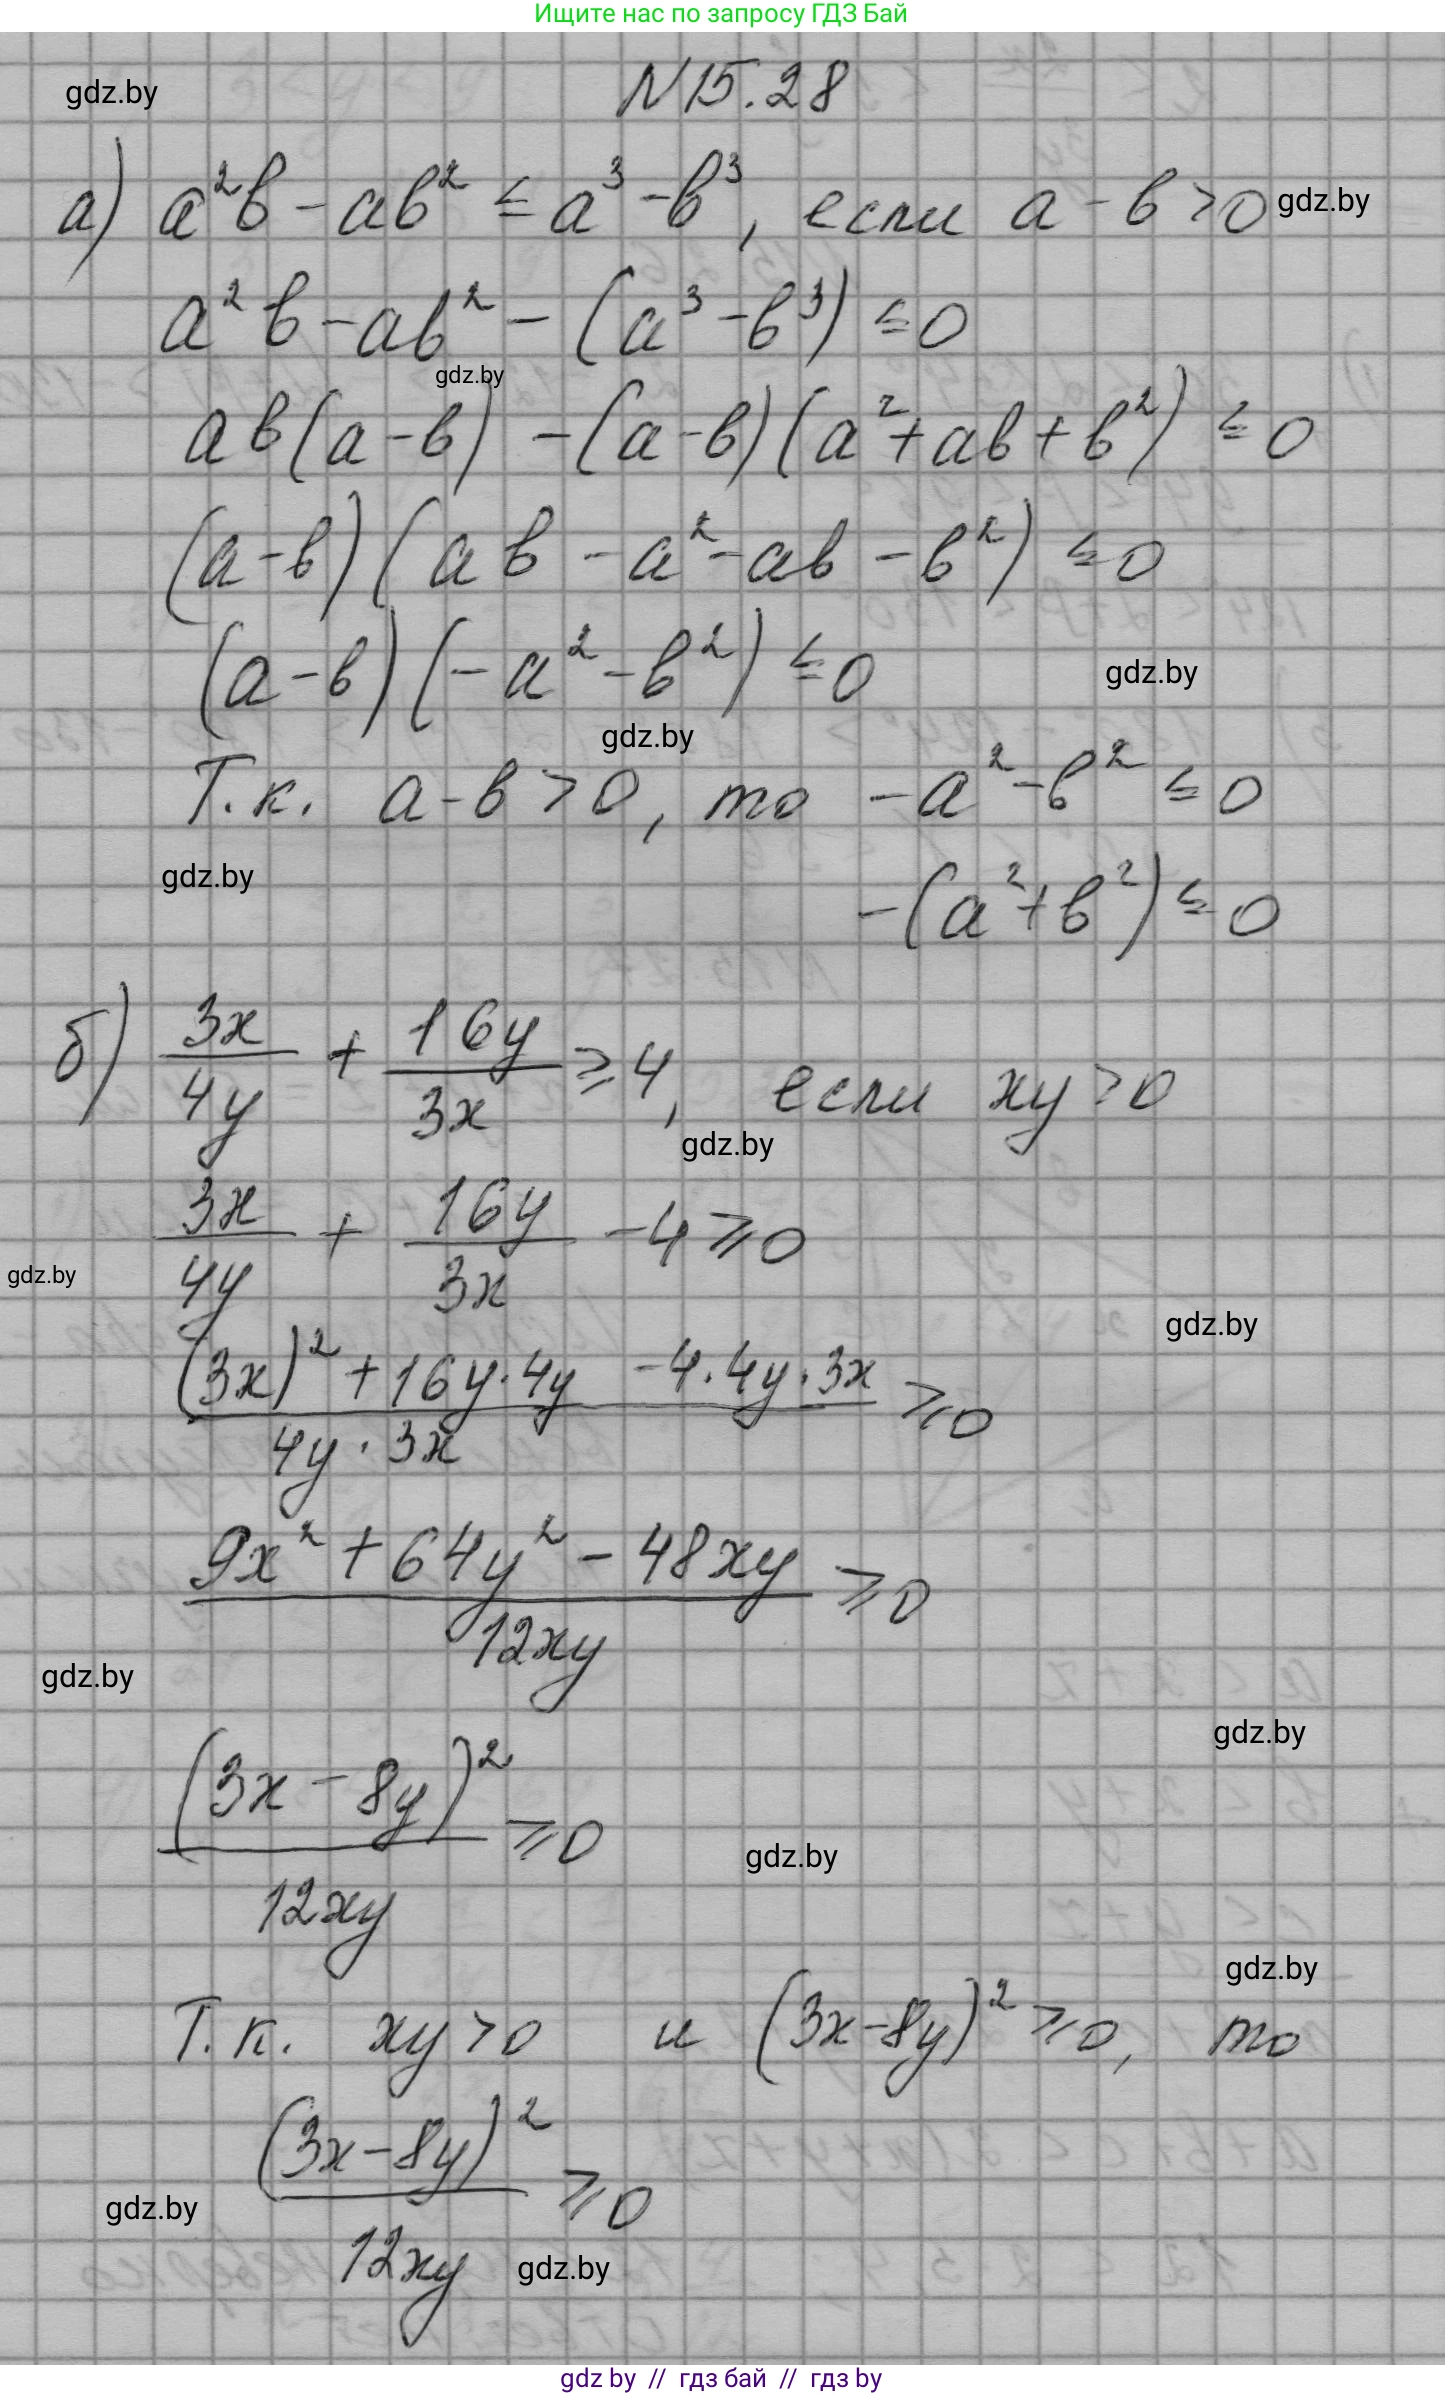 Ищите нас по запросу ГДЗ Бай
N15.28
gdz.by
а) a²b - ab² ≤ a³ - b³, если a - b > 0
gdz.by
a²b - ab² - (a³ - b³) ≤ 0
gdz.by
ab(a - b) - (a - b)(a² + ab + b²) ≤ 0
(a - b)(ab - a² - ab - b²) ≤ 0
(a - b)(-a² - b²) ≤ 0
gdz.by
gdz.by
Т.к. a - b > 0, то -a² - b² ≤ 0
gdz.by
-(a² + b²) ≤ 0
б) 3x/4y + 16y/3x ≥ 4, если xy > 0
gdz.by
3x/4y + 16y/3x - 4 ≥ 0
gdz.by
gdz.by
((3x)² + 16y·4y - 4·4y·3x)/(4y·3x) ≥ 0
(9x² + 64y² - 48xy)/12xy ≥ 0
gdz.by
gdz.by
(3x - 8y)²/12xy ≥ 0
gdz.by
gdz.by
Т.к. xy > 0 и (3x - 8y)² ≥ 0, то
(3x - 8y)²/12xy ≥ 0
gdz.by
gdz.by
gdz by // гдз бай // гдз by